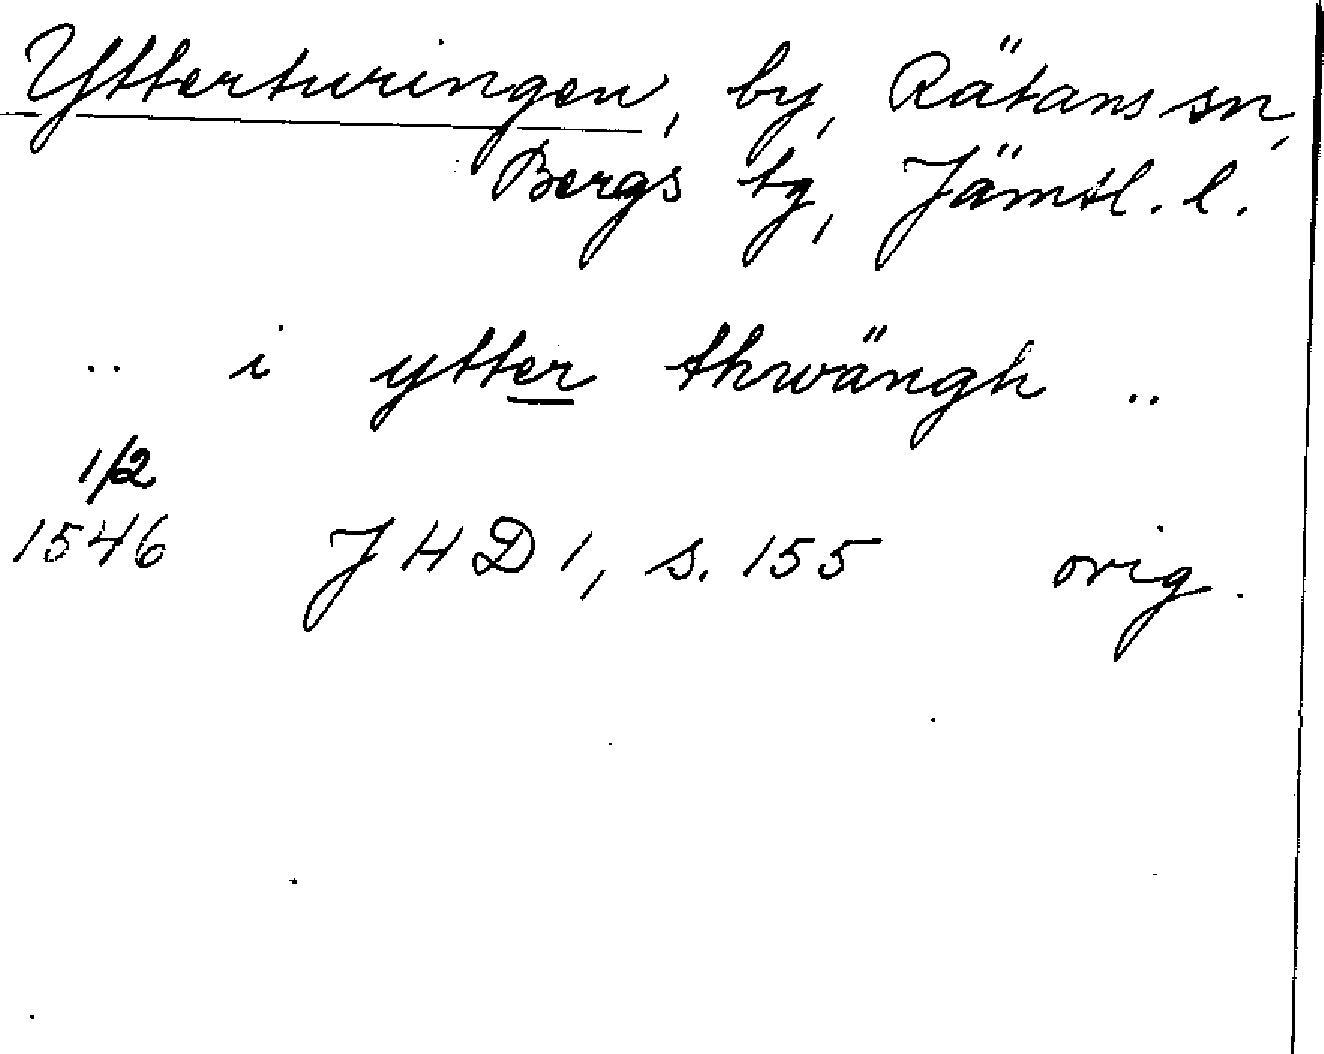 Ytterturingen, by, Rätans sn,
Bergs tg, Jämtl. l.
.. i ytter thwängh ..
1/2
1546 JHD 1, s. 155 orig.